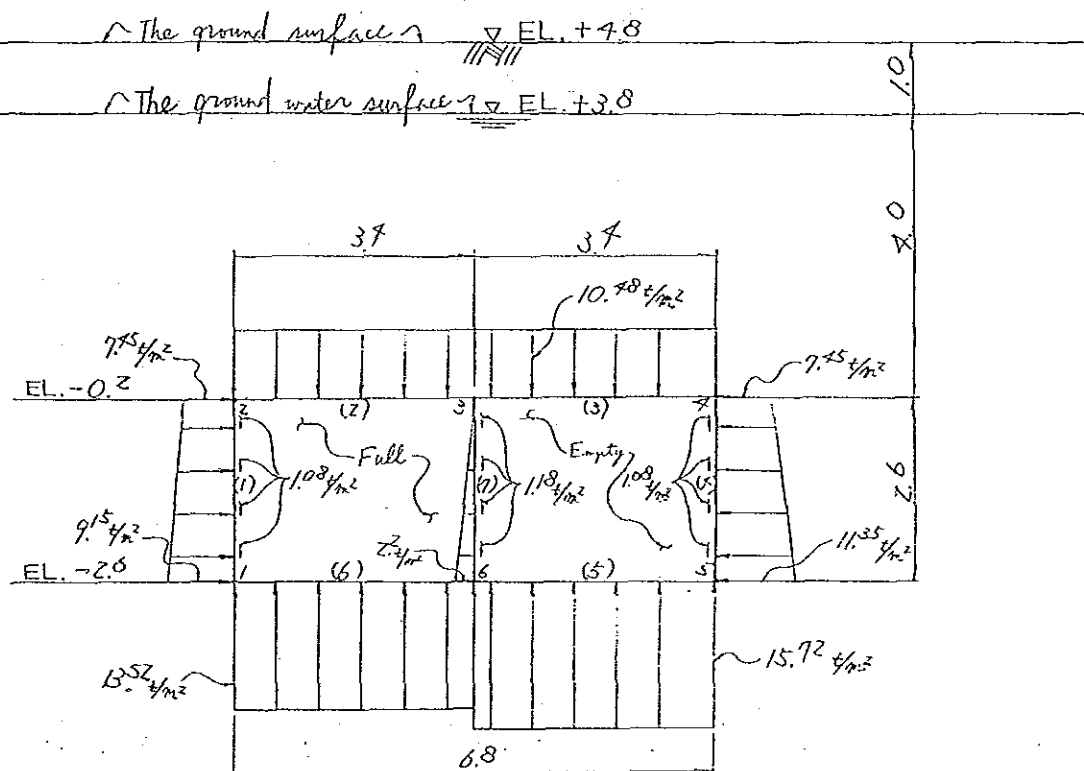 The ground surface ▽ EL. +4.8
1.0
The ground water surface ▽ EL. +3.8
4.0
3.4 3.4
10.48 t/m²
7.45 t/m² 7.45 t/m²
EL. -0.2
2 (2) 3 (3) 4
Full Empty
(1) 1.08 t/m² (7) 1.18 t/m² 1.08 t/m²
2.6
9.15 t/m² 2.2 t/m² 11.35 t/m²
EL. -2.8
1 (6) 6 (5) 5
13.52 t/m² 15.72 t/m²
6.8